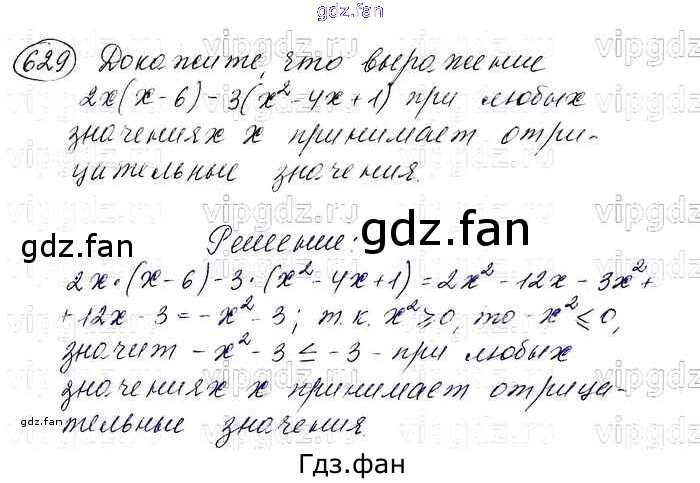 gdz.fan
629 Докажите, что выражение
2x(x-6)-3(x²-4x+1) при любых
значениях x принимает отри-
цательные значения.
gdz.fan
gdz.fan
Решение:
2x·(x-6)-3·(x²-4x+1)=2x²-12x-3x²+
+12x-3=-x²-3; т.к. x²≥0, то -x²≤0,
значит -x²-3≤-3 - при любых
значениях x принимает отрица-
gdz.fan
тельные значения.
Гдз.фан